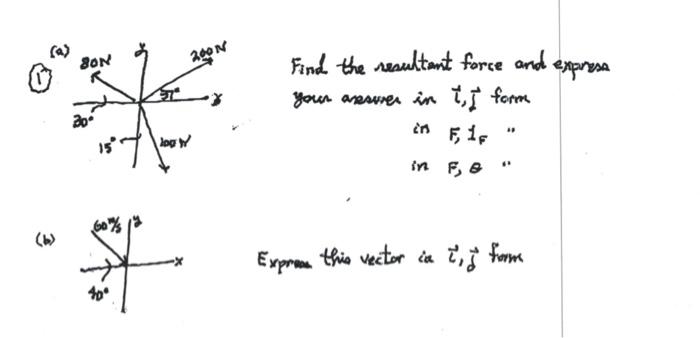 (a)
80N
y
200N
1
37°
x
30°
15°
100N
Find the resultant force and express
your answer in i, j form
in F, 1F "
in F, θ "
(b)
60 m/s
y
x
40°
Express this vector in i, j form